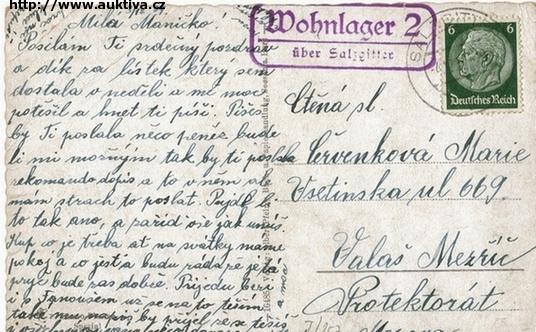 http://www.auktiva.cz
Milá Maničko!
Posílám Ti srdečný pozdrav
a dík za lístek který sem
dostala v neděli a mě moc
potěšil a hnet ti píši. Píšeš
by Ti poslala neco peněz bude
li mi možným tak by ti poslala
rekomando dopis a to v něm ale
mám strach to poslat. Pujde li
to tak ano, a zařiď vše jak umíš.
Kup co je třeba at na svátky máme
pokoj a co jest a budu ráda že je ta
pryč bude zas dobře. Prijedu
i o Janoušem už se na to těším
také mu napiš by přijel
Wohnlager 2
über Salzgitter
SAL
6 6
Deutsches Reich
Ctěná sl.
Červenková Marie
Vsetinska ul 669.
Valaš Meziříč
Protektorát